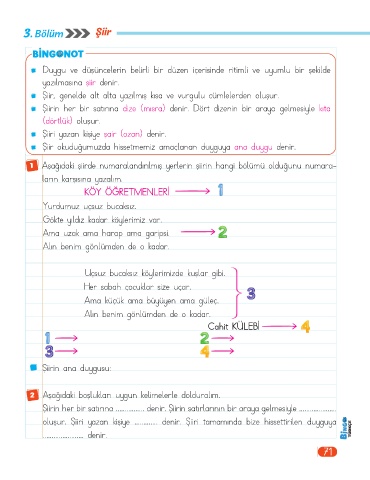 3. Bölüm Şiir
BİNGONOT
Duygu ve düşüncelerin belirli bir düzen içerisinde ritimli ve uyumlu bir şekilde
yazılmasına şiir denir.
Şiir, genelde alt alta yazılmış kısa ve vurgulu cümlelerden oluşur.
Şiirin her bir satırına dize (mısra) denir. Dört dizenin bir araya gelmesiyle kıta
(dörtlük) oluşur.
Şiiri yazan kişiye şair (ozan) denir.
Şiir okuduğumuzda hissetmemiz amaçlanan duyguya ana duygu denir.
1 Aşağıdaki şiirde numaralandırılmış yerlerin şiirin hangi bölümü olduğunu numara-
ların karşısına yazalım.
KÖY ÖĞRETMENLERİ 1
Yurdumuz uçsuz bucaksız.
Gökte yıldız kadar köylerimiz var.
Ama uzak ama harap ama garipsi. 2
Alın benim gönlümden de o kadar.
Uçsuz bucaksız köylerimizde kuşlar gibi.
Her sabah çocuklar size uçar.
Ama küçük ama büyüyen ama güleç.
3
Alın benim gönlümden de o kadar.
Cahit KÜLEBİ 4
1 2
3 4
Şiirin ana duygusu:
2 Aşağıdaki boşlukları uygun kelimelerle dolduralım.
Şiirin her bir satırına ............... denir. Şiirin satırlarının bir araya gelmesiyle ...................
oluşur. Şiiri yazan kişiye ............ denir. Şiiri tamamında bize hissettirilen duyguya
..................... denir.
BİNGO
71